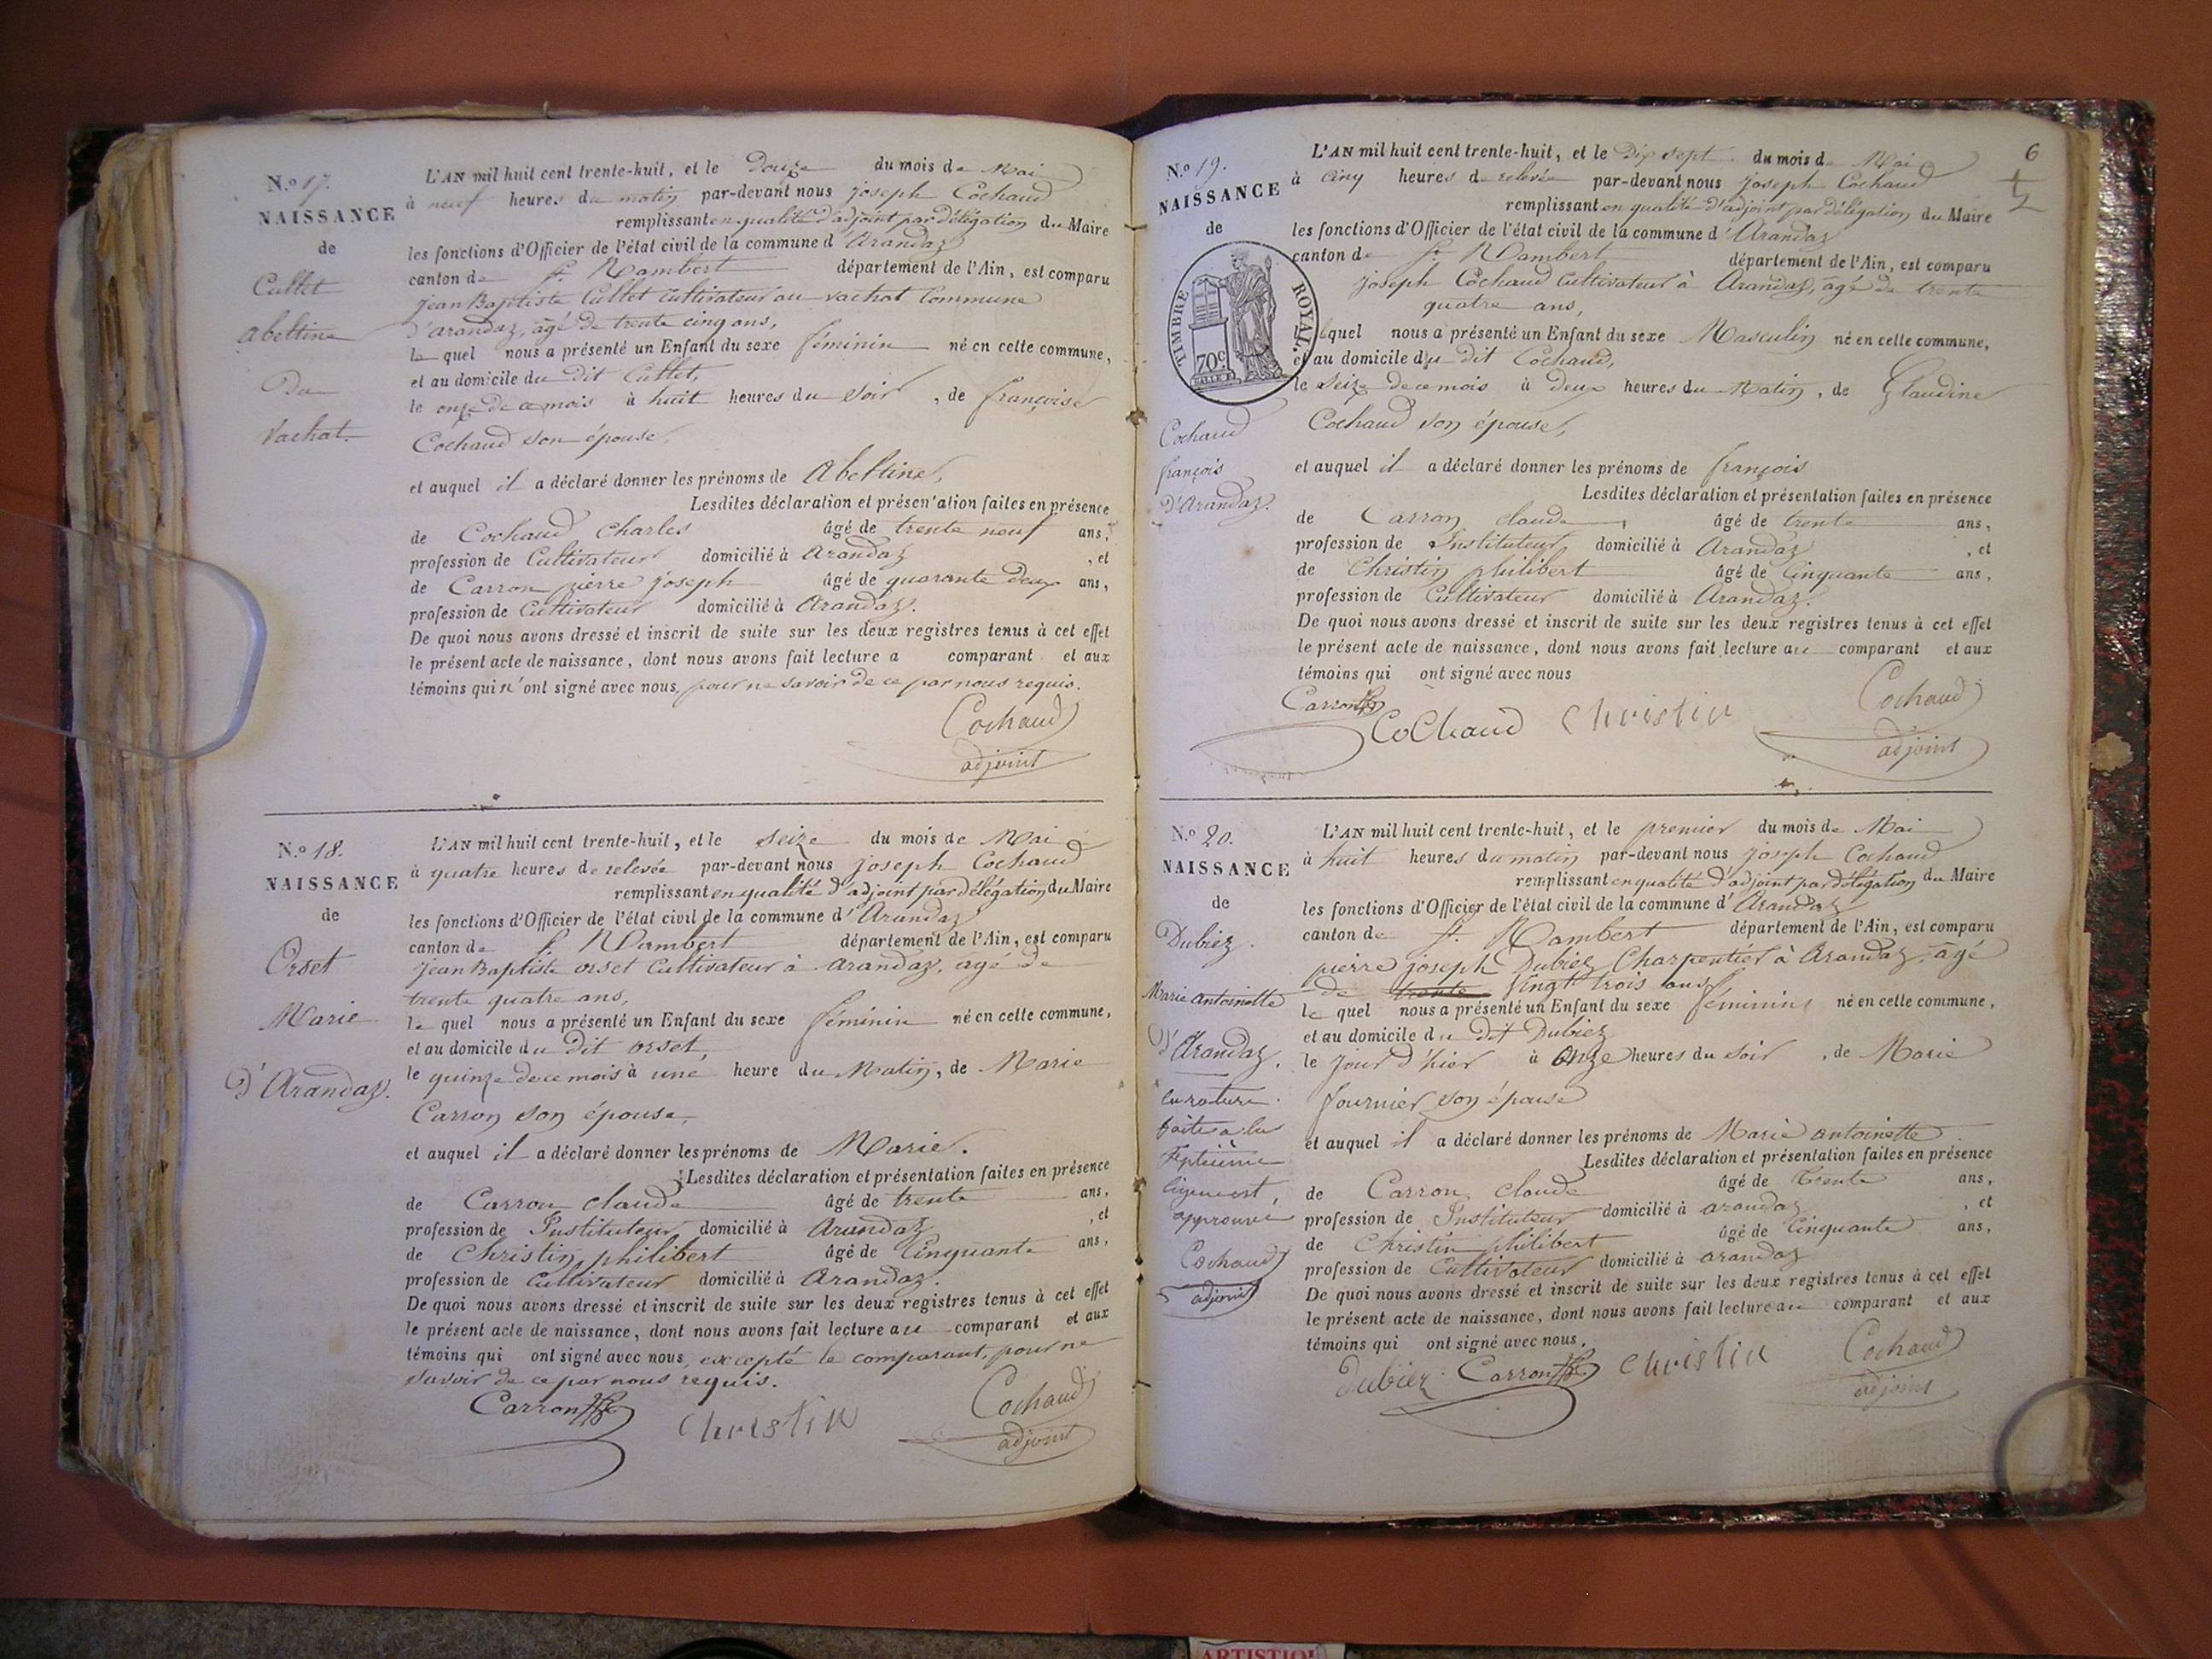 N.º 17.
NAISSANCE
de
Cullet
Abeltine
Du
Vachat.
L'AN mil huit cent trente-huit, et le Douze du mois de Mai
à neuf heures du matin par-devant nous Joseph Cochaud
remplissant en qualité d'adjoint par délégation du Maire
les fonctions d'Officier de l'état civil de la commune d'Arandaz
canton de St Rambert département de l'Ain, est comparu
Jean Baptiste Cullet Cultivateur au vachat Commune
d'arandaz, âgé de trente cinq ans,
le quel nous a présenté un Enfant du sexe féminin né en cette commune,
et au domicile du dit Cullet,
le onze de ce mois à huit heures du soir, de françoise
Cochaud son épouse,
et auquel il a déclaré donner les prénoms de Abeltine,
Lesdites déclaration et présentation faites en présence
de Cochaud Charles âgé de trente neuf ans,
profession de Cultivateur domicilié à Arandaz, et
de Carron pierre joseph âgé de quarante deux ans,
profession de Cultivateur domicilié à Arandaz.
De quoi nous avons dressé et inscrit de suite sur les deux registres tenus à cet effet
le présent acte de naissance, dont nous avons fait lecture a comparant et aux
témoins qui n'ont signé avec nous, pour ne savoir de ce par nous requis.
Cochaud
adjoint
N.º 18.
NAISSANCE
de
Orset
Marie
D'Arandaz.
L'AN mil huit cent trente-huit, et le seize du mois de Mai
à quatre heures de relevée par-devant nous Joseph Cochaud
remplissant en qualité d'adjoint par délégation du Maire
les fonctions d'Officier de l'état civil de la commune d'Arandaz
canton de St Rambert département de l'Ain, est comparu
Jean Baptiste orset Cultivateur à Arandaz, âgé de
trente quatre ans,
le quel nous a présenté un Enfant du sexe féminin né en cette commune,
et au domicile du dit orset,
le quinze de ce mois à une heure du Matin, de Marie
Carron son épouse,
et auquel il a déclaré donner les prénoms de Marie.
Lesdites déclaration et présentation faites en présence
de Carron claude âgé de trente ans,
profession de Instituteur domicilié à Arandaz, et
de Christin philibert âgé de Cinquante ans,
profession de Cultivateur domicilié à Arandaz.
De quoi nous avons dressé et inscrit de suite sur les deux registres tenus à cet effet
le présent acte de naissance, dont nous avons fait lecture au comparant et aux
témoins qui ont signé avec nous, excepté le comparant, pour ne
savoir de ce par nous requis.
Carron
Christin
Cochaud
adjoint
6
N.º 19.
NAISSANCE
de
TIMBRE ROYAL.
70c
Cochaud
françois
D'Arandaz.
L'AN mil huit cent trente-huit, et le Dix sept du mois de Mai
à Cinq heures de relevée par-devant nous Joseph Cochaud
remplissant en qualité d'adjoint par délégation du Maire
les fonctions d'Officier de l'état civil de la commune d'Arandaz
canton de St Rambert département de l'Ain, est comparu
Joseph Cochaud Cultivateur à Arandaz, âgé de trente
quatre ans,
lequel nous a présenté un Enfant du sexe Masculin né en cette commune,
et au domicile du dit Cochaud,
le Seize de ce mois à Deux heures du Matin, de Glaudine
Cochaud son épouse,
et auquel il a déclaré donner les prénoms de françois
Lesdites déclaration et présentation faites en présence
de Carron claude, âgé de trente ans,
profession de Instituteur domicilié à Arandaz, et
de Christin philibert âgé de Cinquante ans,
profession de Cultivateur domicilié à Arandaz.
De quoi nous avons dressé et inscrit de suite sur les deux registres tenus à cet effet
le présent acte de naissance, dont nous avons fait lecture au comparant et aux
témoins qui ont signé avec nous
Carron
Cochaud
Christin
Cochaud
adjoint
N.º 20.
NAISSANCE
de
Dubiez.
Marie Antoinette
D'Arandaz.
la rature
faite a la
septième
ligne est,
approuvée
Cochaud
adjoint
L'AN mil huit cent trente-huit, et le premier du mois de Mai
à huit heures du matin par-devant nous Joseph Cochaud
remplissant en qualité d'adjoint par délégation du Maire
les fonctions d'Officier de l'état civil de la commune d'Arandaz
canton de St Rambert département de l'Ain, est comparu
pierre joseph Dubiez Charpentier à Arandaz, âgé
de trente Vingt trois ans
le quel nous a présenté un Enfant du sexe féminins né en cette commune,
et au domicile du dit Dubiez
le jour d'hier à onze heures du soir, de Marie
fournier son épouse
et auquel il a déclaré donner les prénoms de Marie Antoinette
Lesdites déclaration et présentation faites en présence
de Carron claude âgé de trente ans,
profession de Instituteur domicilié à arandaz, et
de Christin philibert âgé de Cinquante ans,
profession de Cultivateur domicilié à arandaz
De quoi nous avons dressé et inscrit de suite sur les deux registres tenus à cet effet
le présent acte de naissance, dont nous avons fait lecture au comparant et aux
témoins qui ont signé avec nous.
Dubiez
Carron
Christin
Cochaud
adjoint